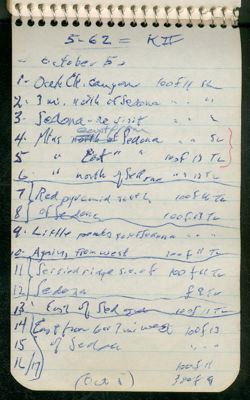 5-62 = K II
October 5
1- Oak Ck. Canyon 100 f 11
2- 3 mi. North of Sedona " "
3- Sedona-re visit " "
4- Mtns north of Sedona " "
5 " East " " 100 f 13
6- " north of Sedona " 13
7 Red pyramid south 100 f
8 of Sedona 100 f 13
9- Little peaks Sedona " "
10- from west 100 f 11
11 Serried ridge s.e. of 100 f 11
12 Sedona f 9
13 East of Sedona 100 f 11
14 East from 6 or 7 mi west 100 f 13
15 of Sedona " "
16/17 100 f 11
(Oct 5) f 9